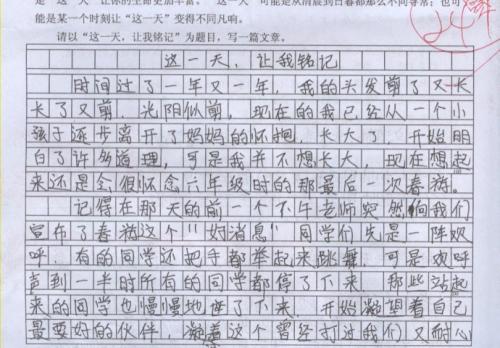 是"这一天"让你的生命更加丰富。"这一天"可能是从清晨到日暮都那么不同寻常;也可
能是某一个时刻让"这一天"变得不同凡响。
请以"这一天,让我铭记"为题目,写一篇文章。
这一天,让我铭记
时间过了一年又一年,我的头发剪了又长
长了又剪,光阴似箭,现在的我已经从一个小
孩子逐步离开了妈妈的怀抱,长大了,开始明
白了许多道理,可是我并不想长大,现在想起
来还是会很怀念六年级时的那最后一次春游。
记得在那天的前一个下午老师突然向我们
宣布了春游这个"好消息"同学们先是一阵欢
呼,有的同学还把手都举起来跳舞,可是欢呼
声到一半时所有的同学都停了下来,那些站起
来的同学也慢慢地座了下来,开始凝望着自己
最要好的伙伴,凝着这个曾经打过我们又耐心